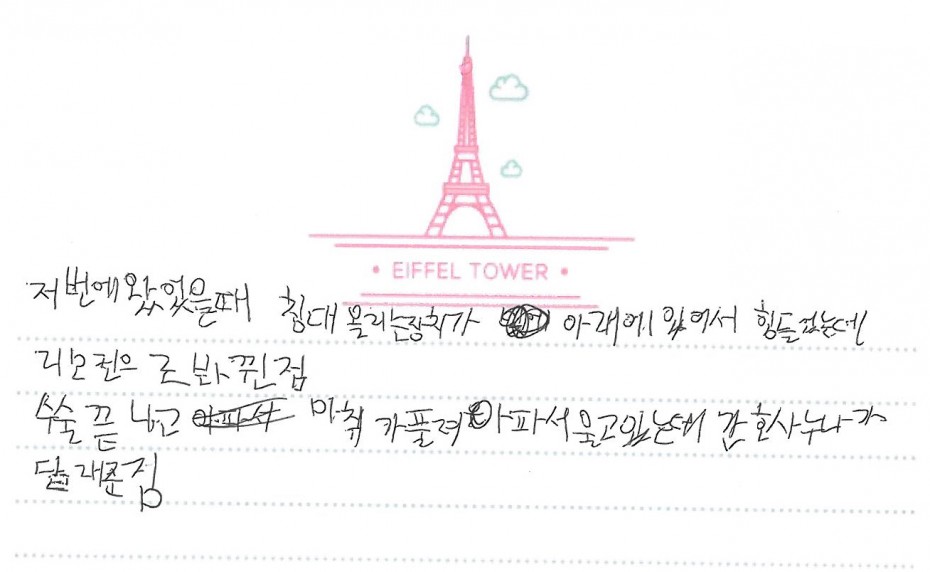 • EIFFEL TOWER •
저번에 왔었을때 침대 올리는장치가 아래에 있어서 힘들었는데
리모컨으로 바뀐점
수술 끝나고 마취가 풀려 아파서 울고있는데 간호사누나가
달래준점